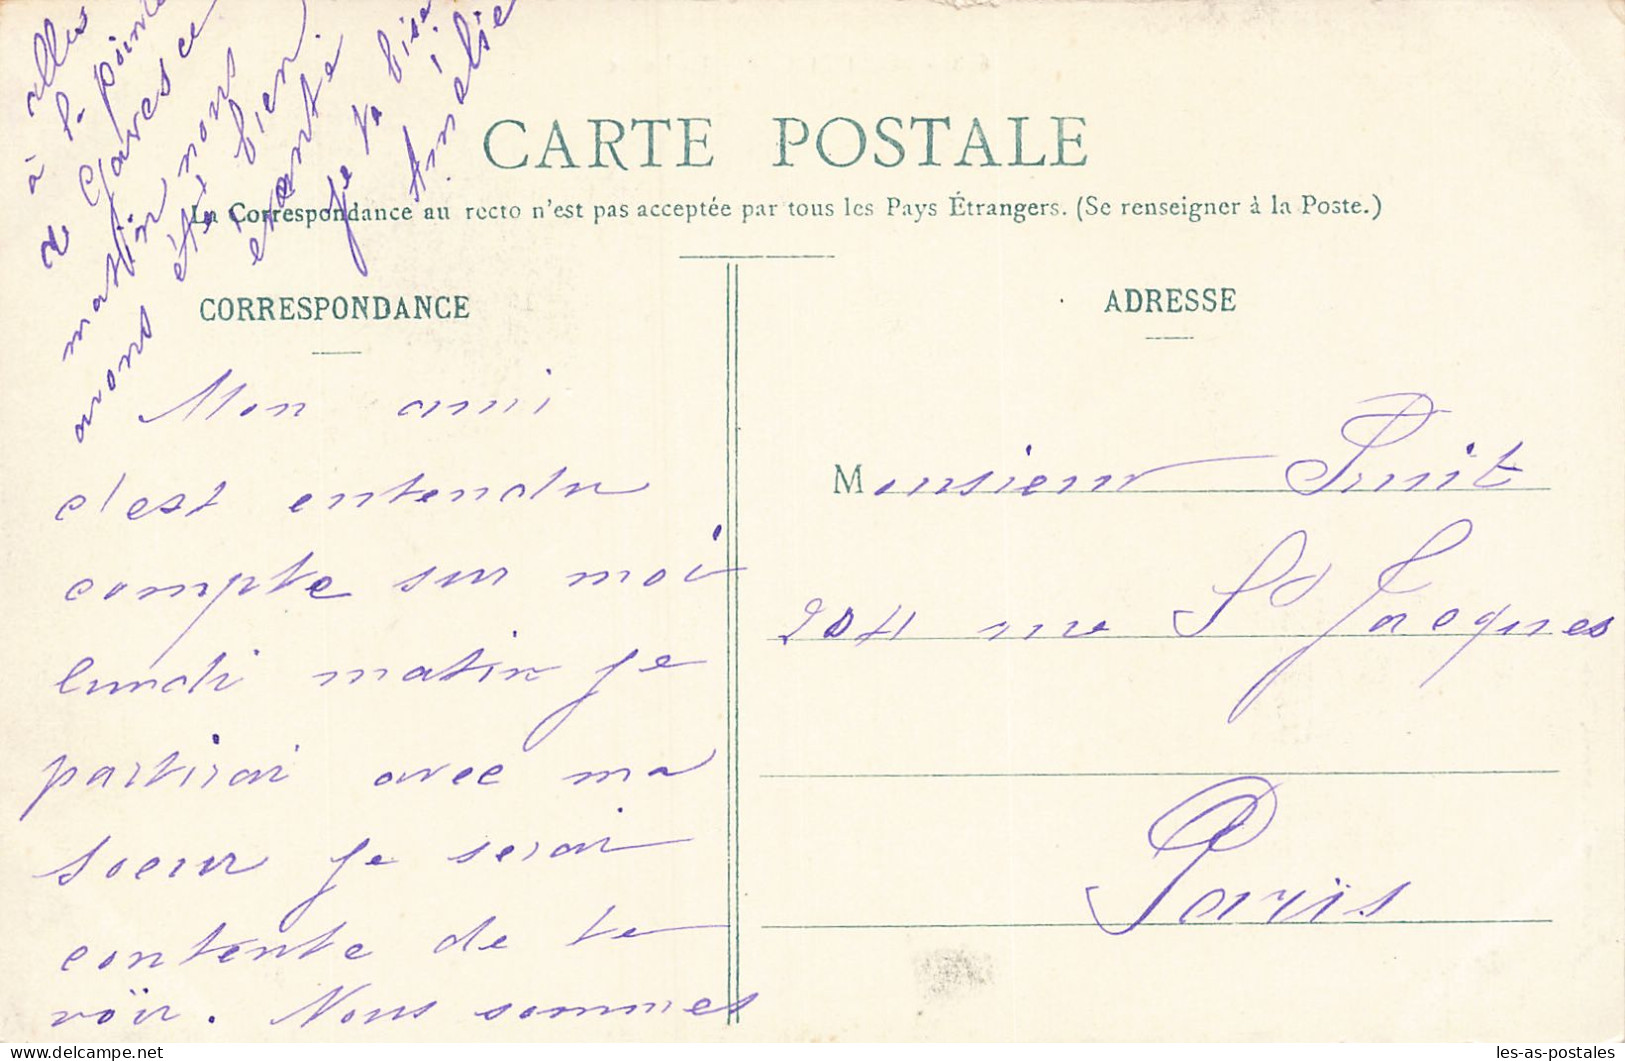 CARTE POSTALE
La Correspondance au recto n'est pas acceptée par tous les Pays Étrangers. (Se renseigner à la Poste.)
CORRESPONDANCE
Mon ami
c'est entendu
compte sur moi
lundi matin je
partirai avec ma
soeur je serai
contente de te
voïr. Nous sommes
allés
à la pointe
de Gaves ce
matin nous
avons été bien
contente.
Je ta bise
Amélie
ADRESSE
Monsieur Pruit
204 rue St Jacques
Parïs
les-as-postales